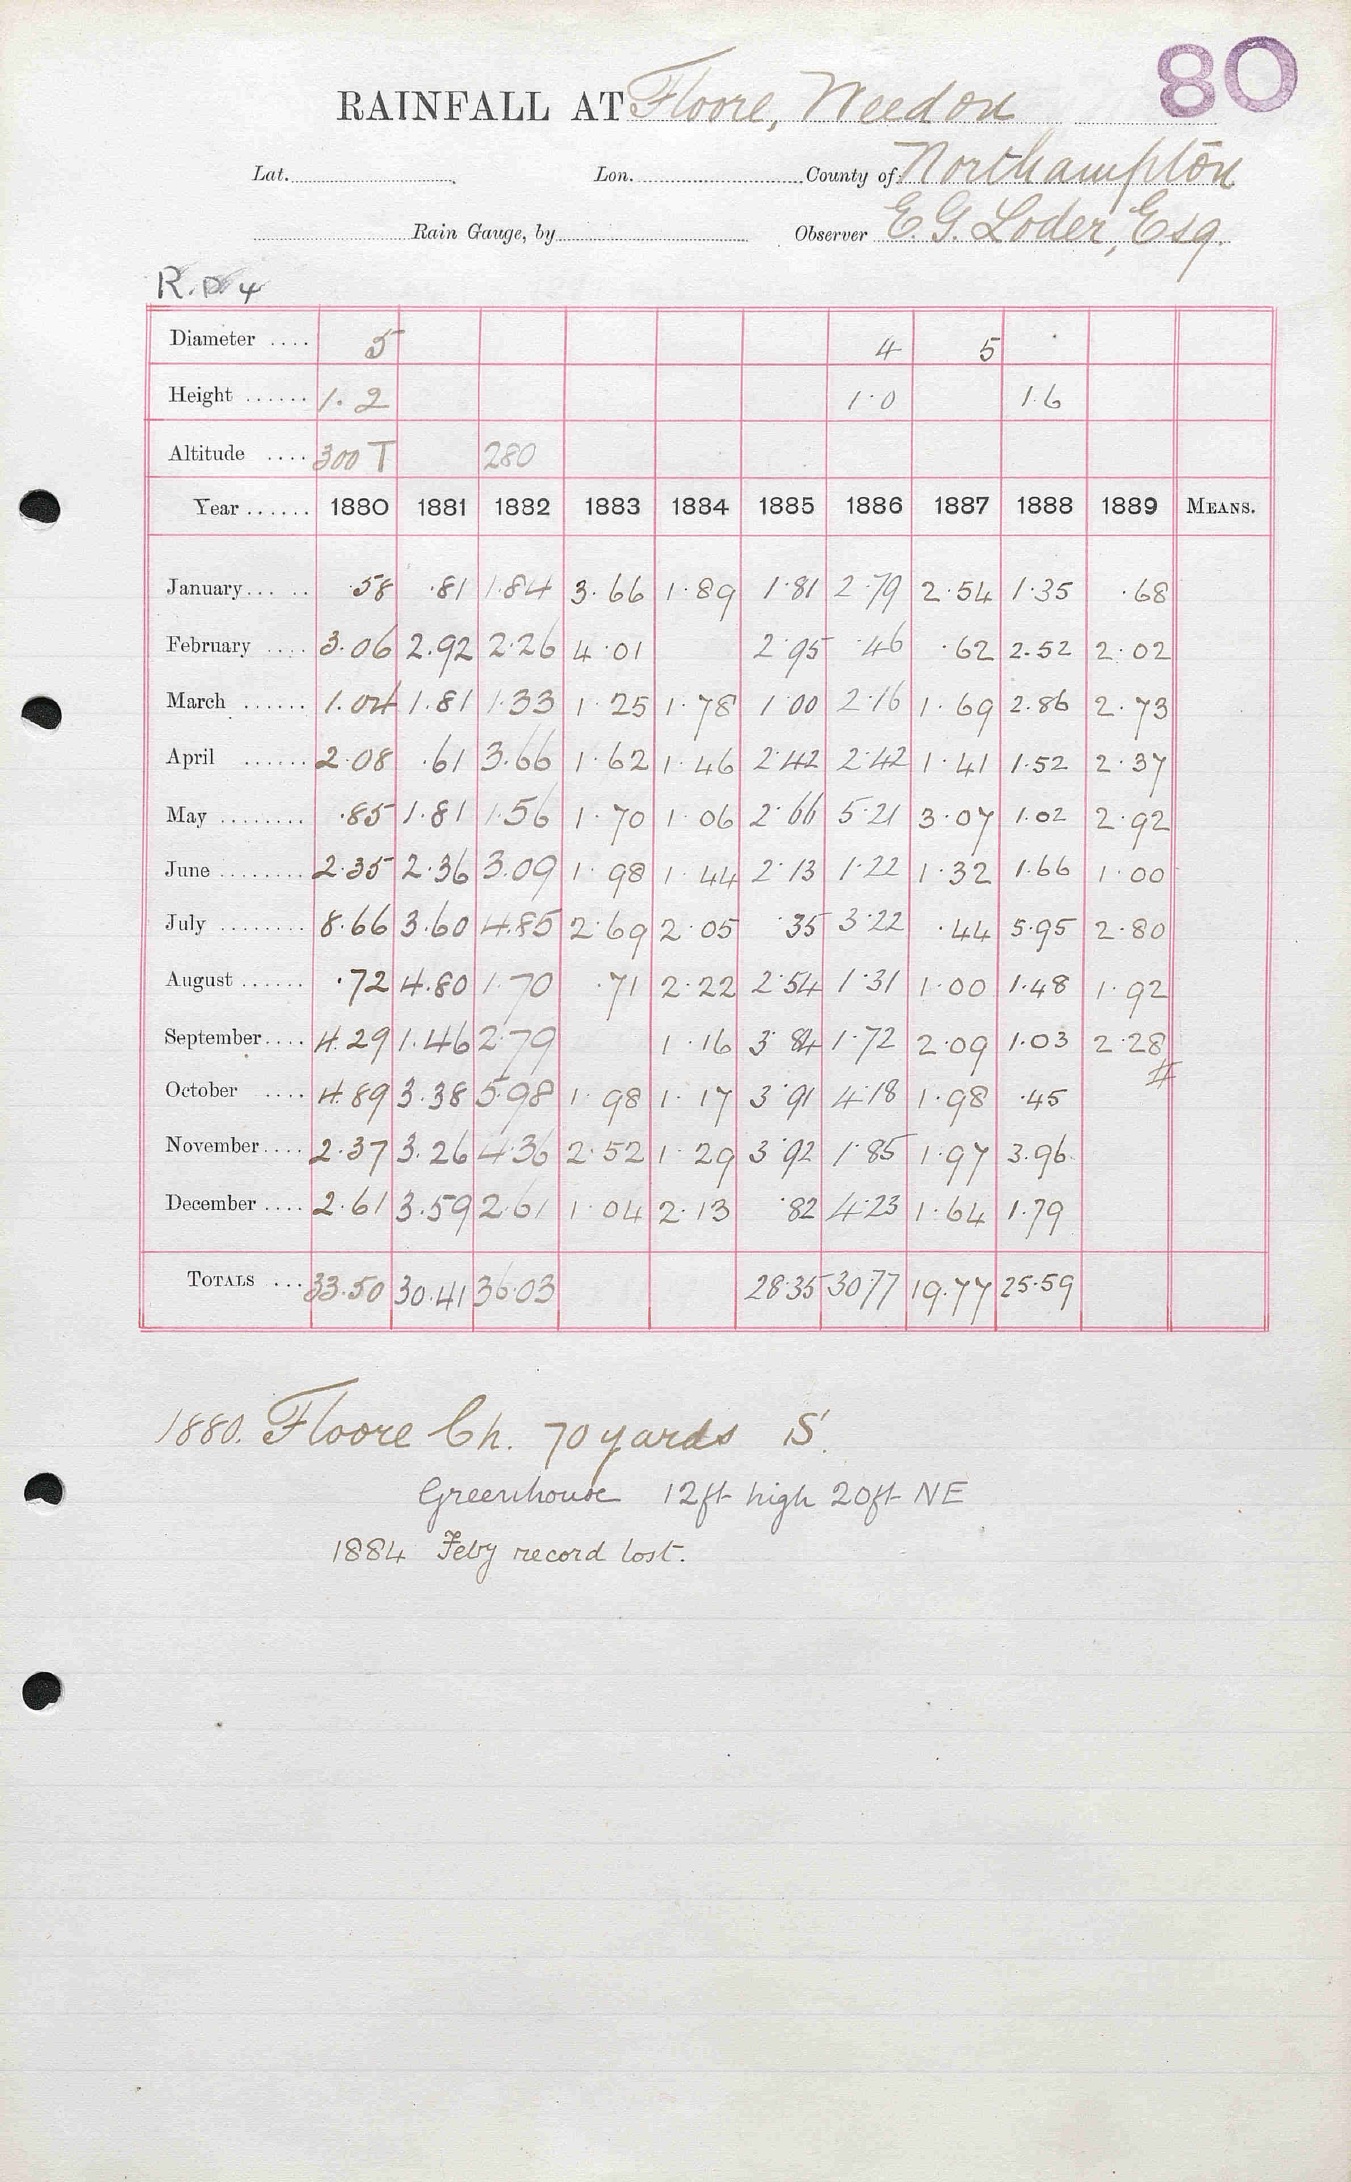 80
RAINFALL AT Floore, Weedon
Lat. Lon. County of Northampton
Rain Gauge, by Observer E.G. Loder, Esq.
R.
Diameter .... 5 4 5
Height ...... 1.2 1.0 1.6
Altitude .... 300 T 280
Year ...... 1880 1881 1882 1883 1884 1885 1886 1887 1888 1889 MEANS.
January ... .. .58 .81 1.84 3.66 1.89 1.81 2.79 2.54 1.35 .68
February .... 3.06 2.92 2.26 4.01 2.95 .46 .62 2.52 2.02
March ...... 1.04 1.81 1.33 1.25 1.78 1.00 2.16 1.69 2.86 2.73
April ...... 2.08 .61 3.66 1.62 1.46 2.42 2.42 1.41 1.52 2.37
May ........ .85 1.81 1.56 1.70 1.06 2.66 5.21 3.07 1.02 2.92
June ........ 2.35 2.36 3.09 1.98 1.44 2.13 1.22 1.32 1.66 1.00
July ........ 8.66 3.60 4.85 2.69 2.05 .35 3.22 .44 5.95 2.80
August ...... .72 4.80 1.70 .71 2.22 2.54 1.31 1.00 1.48 1.92
September .... 4.29 1.46 2.79 1.16 3.84 1.72 2.09 1.03 2.28
October .... 4.89 3.38 5.98 1.98 1.17 3.91 4.18 1.98 .45
November .... 2.37 3.26 4.36 2.52 1.29 3.92 1.85 1.97 3.96
December .... 2.61 3.59 2.61 1.04 2.13 .82 4.23 1.64 1.79
TOTALS ... 33.50 30.41 36.03 28.35 30.77 19.77 25.59
1880. Floore Ch. 70 yards S.
Greenhouse 12ft high 20ft NE
1884 Feby record lost.